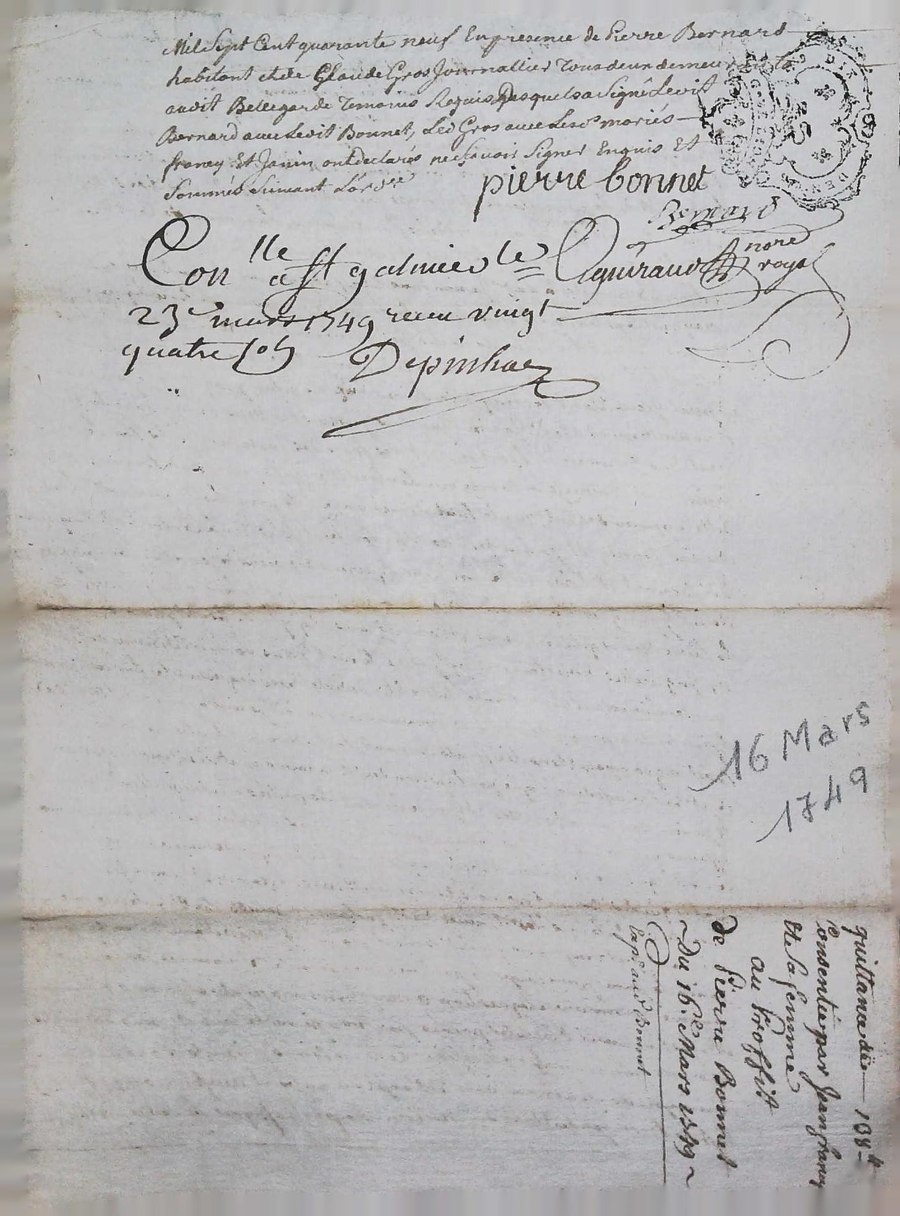 Mil Sept Cent quarante neuf En presence de Pierre Bernard
habitant et de Glaude Gros Journallier Tous deux demeurants
audit Bellegarde Temoins Requis Desquels a Signé Ledit
Bernard avec Ledit Bonnet, Led Gros avec Lesd mariés
franey Et Janin ont declarés ne Scavoir Signer Enquis Et
Sommés Suivant L'ordre
pierre bonnet
Bernard
Conlle a St galmier le
23e mars 1749 receu vingt
quatre sols
Depinhac
Agniraud nore
royal
16 Mars
1749
quittance de 198
Consentie par Jean franey
et de Sa femme
au Proffit
de Pierre Bonnet
Du 16e Mars 1749
Bonnet